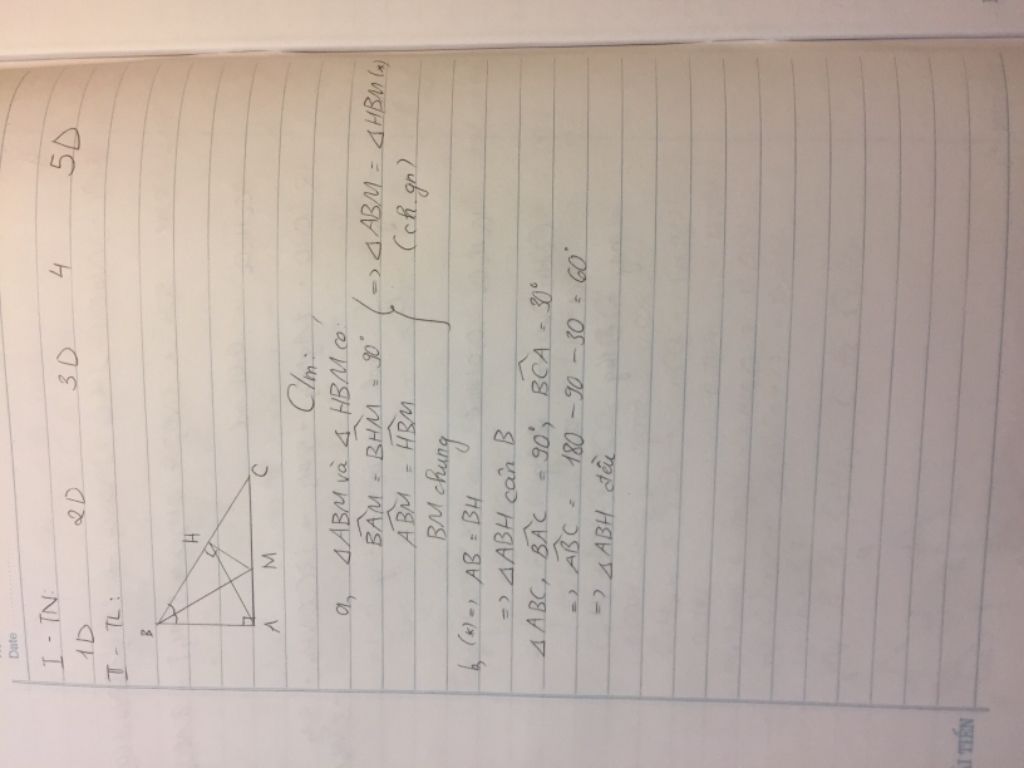 Date
I - TN:
1D 2D 3D 4 5D
II - TL:
B
H
A M C
C/m:
a, △ABM và △HBM có:
BAM = BHM = 90° => △ABM = △HBM (*)
ABM = HBM (ch.gn)
BM chung
b, (*) => AB = BH
=> △ABH cân B
△ABC, BAC = 90°, BCA = 30°
=> ABC = 180 - 90 - 30 = 60°
=> △ABH đều
TIẾN